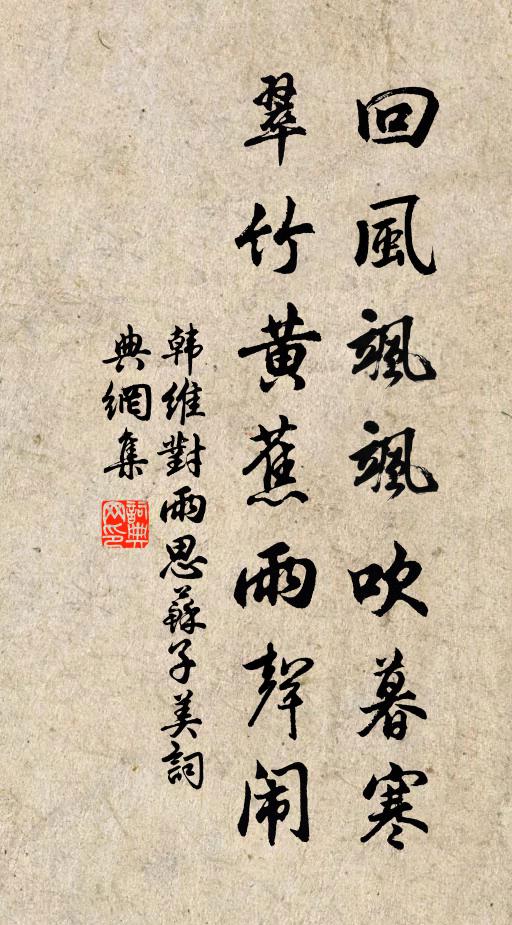 回風颯颯吹暮寒
翠竹黄蕉雨聲闹
韩維對雨思蘇子美詞
典網集
詞典
网印